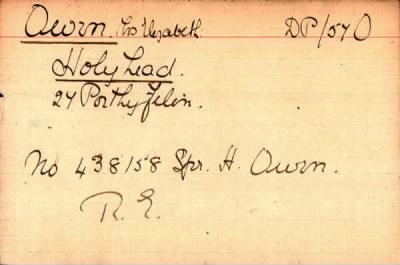 Owen. Mrs Elizabeth. DP/570
Holyhead.
24 Porthyfelin.
No 438158 Spr. H. Owen.
R. E.